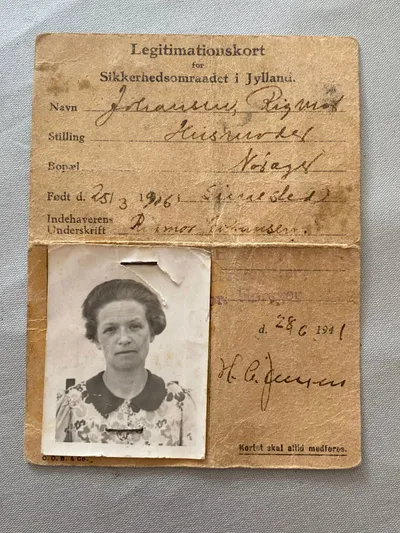 Legitimationskort
for
Sikkerhedsomraadet i Jylland.
Navn Johansen, Rigmor
Stilling Husmoder
Bopæl
Født d. 25/3 1906 i
Indehaverens
Underskrift Rigmor Johansen.
d. 28/6 1941
H. C. Jensen
Kortet skal altid medføres.